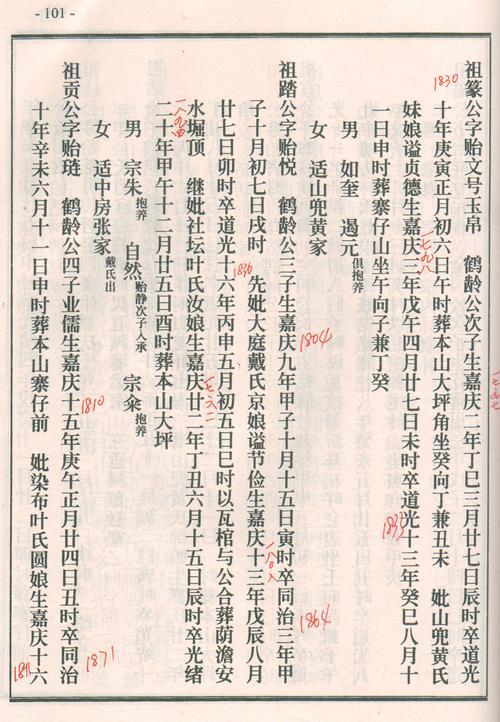 - 101 -
祖篆公字贻文号玉帛　鹤龄公次子生嘉庆二年丁巳三月廿七日辰时卒道光
十年庚寅正月初六日午时葬本山大坪角坐癸向丁兼丑未　妣山兜黄氏
妹娘谥贞德生嘉庆三年戊午四月廿七日未时卒道光十三年癸巳八月十
一日申时葬寨仔山坐午向子兼丁癸
男　如奎　遏元俱抱养
女　适山兜黄家
祖踏公字贻悦　鹤龄公三子生嘉庆九年甲子十月十五日寅时卒同治三年甲
子十月初七日戌时　先妣大庭戴氏京娘谥节俭生嘉庆十三年戊辰八月
廿七日卯时卒道光十六年丙申五月初五日巳时以瓦棺与公合葬荫澹安
水堀顶　继妣社坛叶氏汝娘生嘉庆廿二年丁丑六月十五日辰时卒光绪
二十年甲午十二月廿五日酉时葬本山大坪
男　宗朱抱养　自然贻静次子入承　宗伞抱养
女　适中房张家戴氏出
祖贡公字贻琏　鹤龄公四子业儒生嘉庆十五年庚午正月廿四日丑时卒同治
十年辛未六月十一日申时葬本山寨仔前　妣染布叶氏圆娘生嘉庆十六
一七九七
1830
一七九八
1833
1804
1864
一八〇八
1836
一八九四
1810
1871
1811